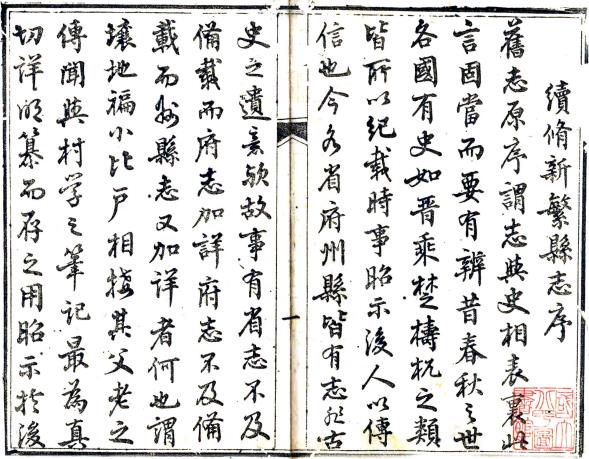 續脩新繁縣志序
舊志原序謂志與史相表裏此
言固當而要有辨昔春秋之世
各國有史如晋乘楚檮杌之類
皆所以紀載時事昭示後人以傳
信也今各省府州縣皆有志亦古
史之遺意歟故事有省志不及
備載而府志加詳府志不及備
載而州縣志又加詳者何也謂
壤地褊小比戶相接其父老之
傳聞與村學之筆記最為真
切詳明纂而存之用昭示於後
一